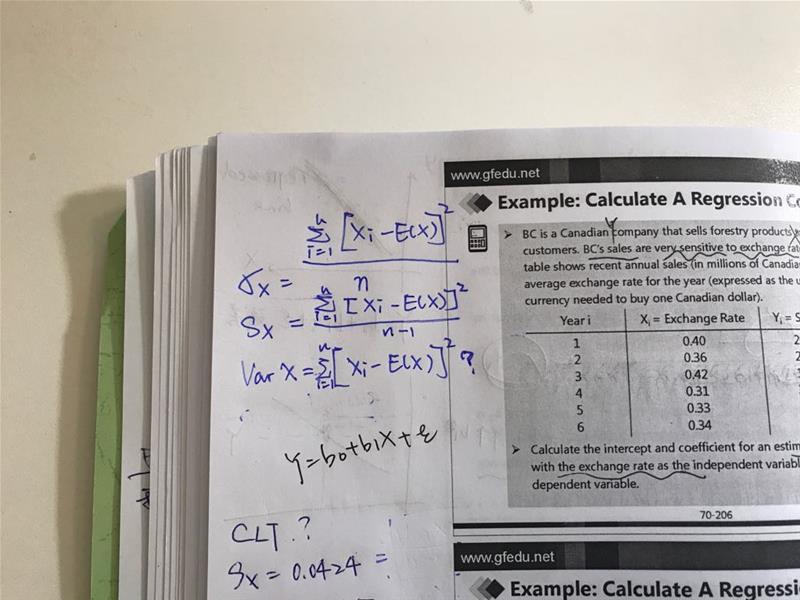 www.gfedu.net
Example: Calculate A Regression Co
BC is a Canadian company that sells forestry products
customers. BC's sales are very sensitive to exchange rat
table shows recent annual sales (in millions of Canadia
average exchange rate for the year (expressed as the u
currency needed to buy one Canadian dollar).
Year i Xi = Exchange Rate Yi = S
1 0.40 2
2 0.36 2
3 0.42
4 0.31 2
5 0.33
6 0.34
Calculate the intercept and coefficient for an estim
with the exchange rate as the independent variabl
dependent variable.
70-206
www.gfedu.net
Example: Calculate A Regressi
σx = Σ i=1 n [Xi - E(X)]² / n
Sx = Σ i=1 n [Xi - E(X)]² / n-1
Var X = Σ i=1 n [Xi - E(X)]² ?
Y = b0 + b1X + ε
CLT ?
Sx = 0.0424 =